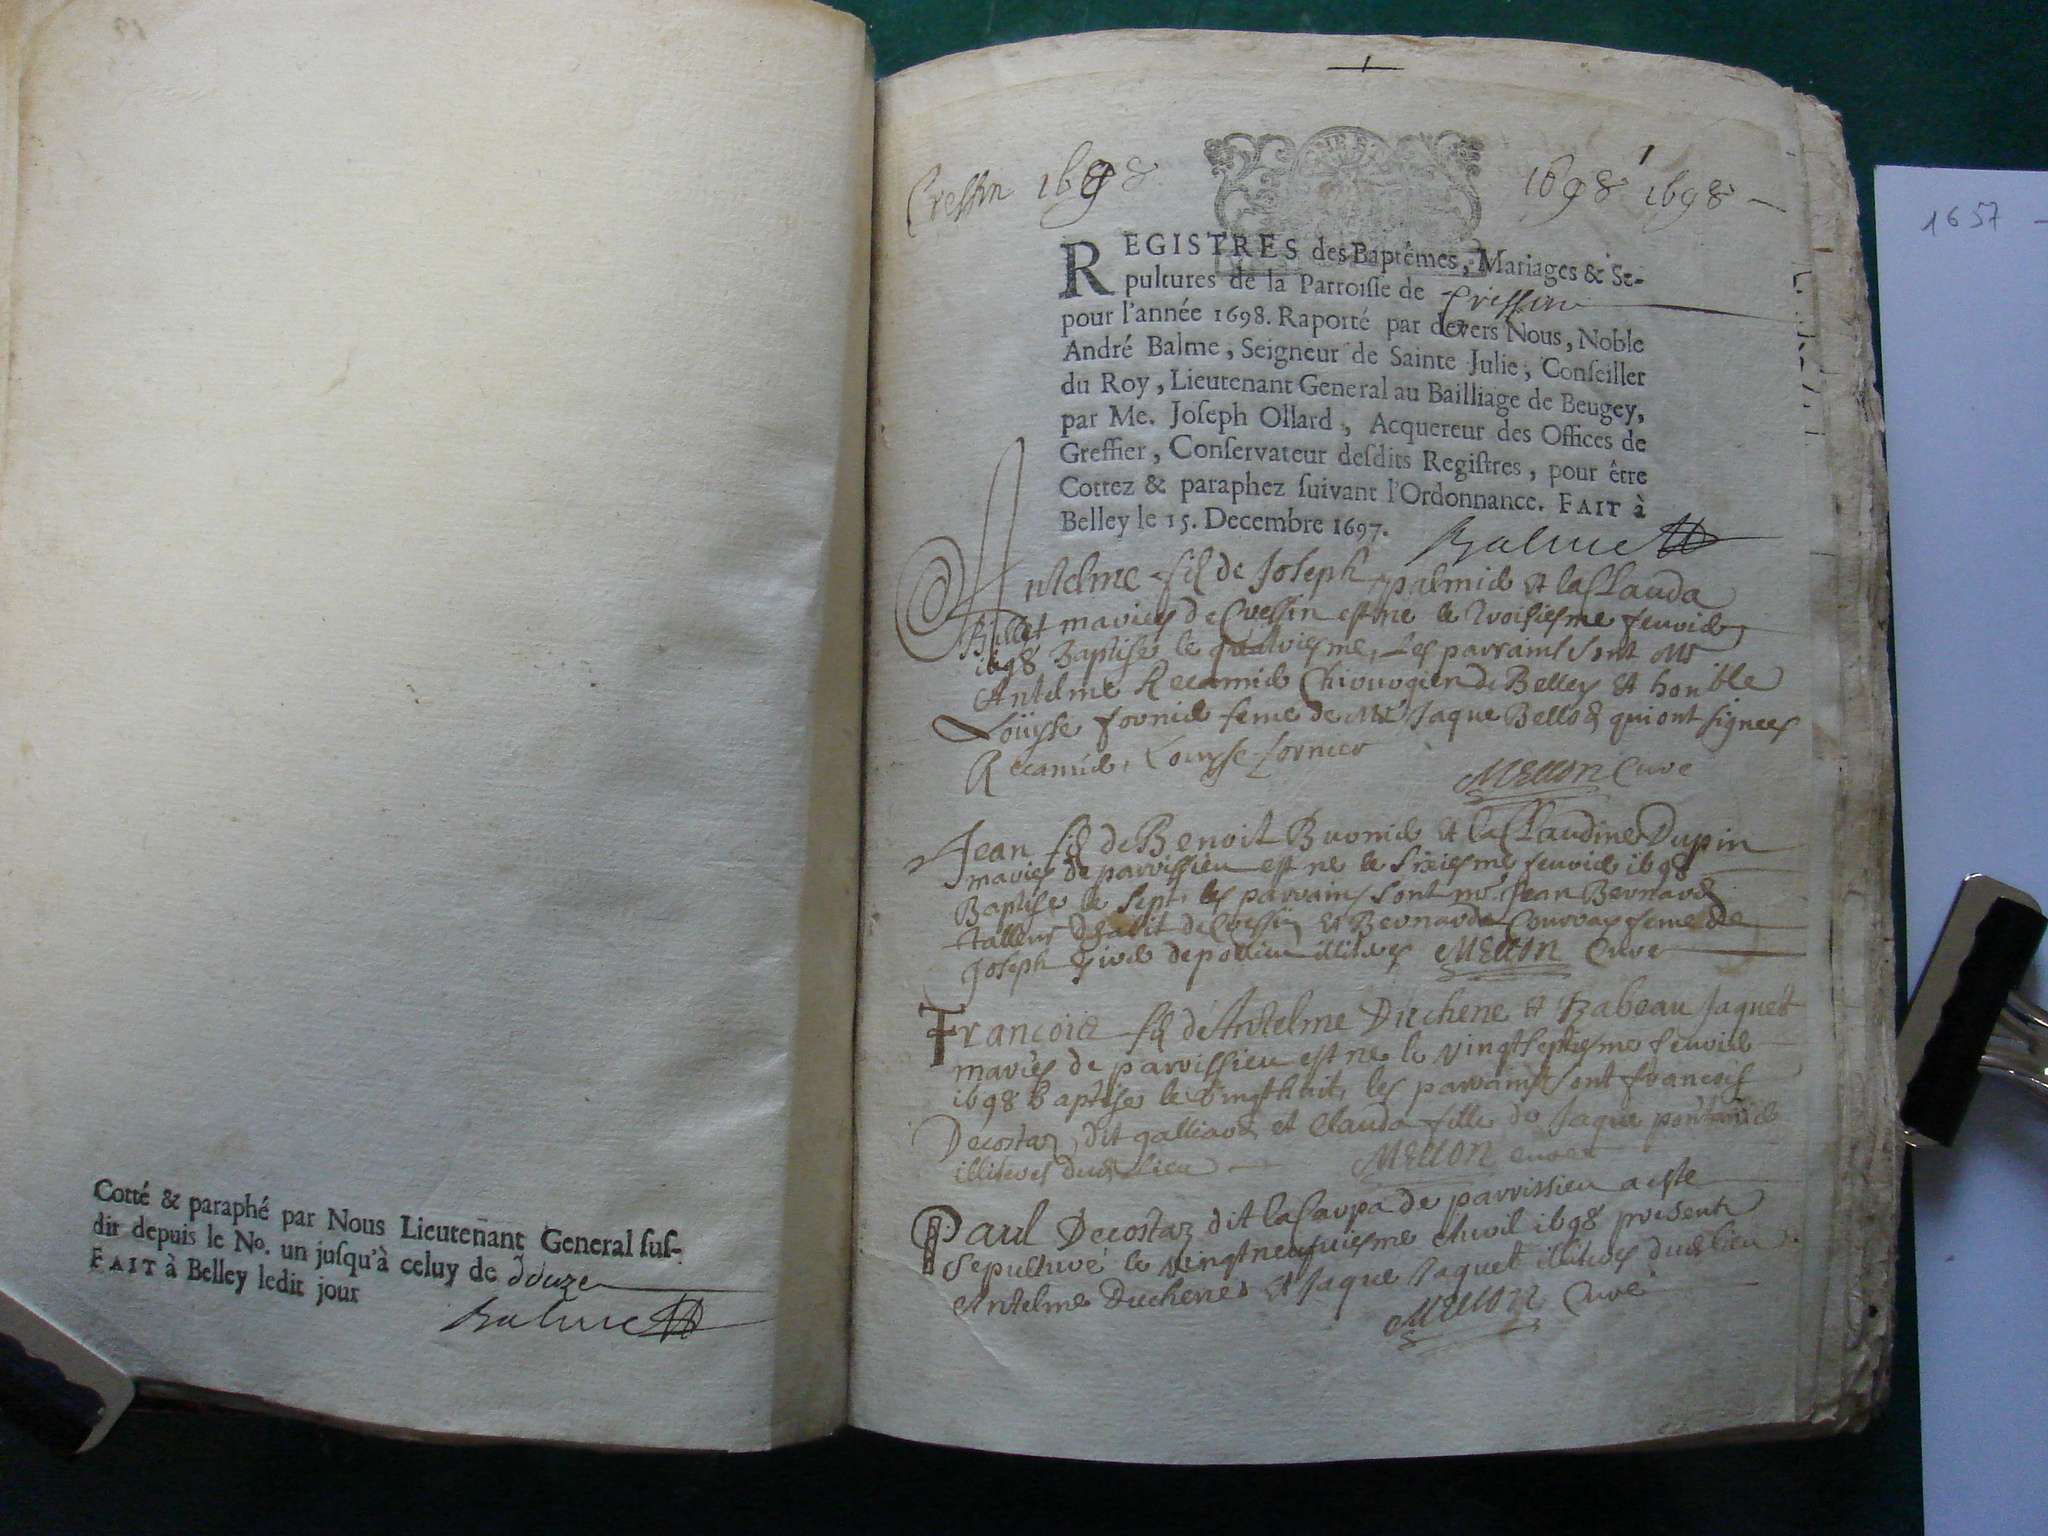 Cotté & paraphé par Nous Lieutenant General sus-
dit depuis le No. un jusqu'à celuy de douze
FAIT à Belley ledit jour
Balme
1
Cressin 1698
1698 1698
REGISTRES des Baptêmes, Mariages & Se-
pultures de la Parroisse de Cressin
pour l'année 1698. Raporté par devers Nous, Noble
André Balme, Seigneur de Sainte Julie, Conseiller
du Roy, Lieutenant General au Bailliage de Beugey,
par Me. Joseph Ollard, Acquereur des Offices de
Greffier, Conservateur desdits Registres, pour être
Cottez & paraphez suivant l'Ordonnance. FAIT à
Belley le 15. Decembre 1697.
Balme
Antelme fils de Joseph et la Clauda
Billet mariés de Cressin est ne le troisiesme fevrier
1698 Baptise le quatriesme, les parrains sont Mr
Antelme Recamier Chirurgien de Belley et honble
Louyse fornier feme de Mr Jaque Bellod qui ont signees
Recamier, Louyse fornier
Mellon Curé
Jean fils de Benoit et la Claudine Dupin
mariés de parvissieu est ne le sixiesme fevrier 1698
Baptise le sept, les parrains sont mr Jean Bernard
talleur d'habit de Cressin et Bernarde feme de
Joseph de pollieu illiteres Mellon Curé
Francois fils de Antelme Duchene et Izabeau Jaquet
mariés de parvissieu est ne le vingtseptiesme fevrier
1698 Baptise le vingthuit, les parrains sont francois
Decostaz dit galliard et Clauda fille de Jaque
illiteres dud lieu Mellon curé
Paul Decostaz dit la Carpa de parvissieu a este
sepulturé le vingtneufviesme Avril 1698 presents
Antelme Duchene et Jaque Jaquet illiteres dud lieu
Mellon Curé
1657 -